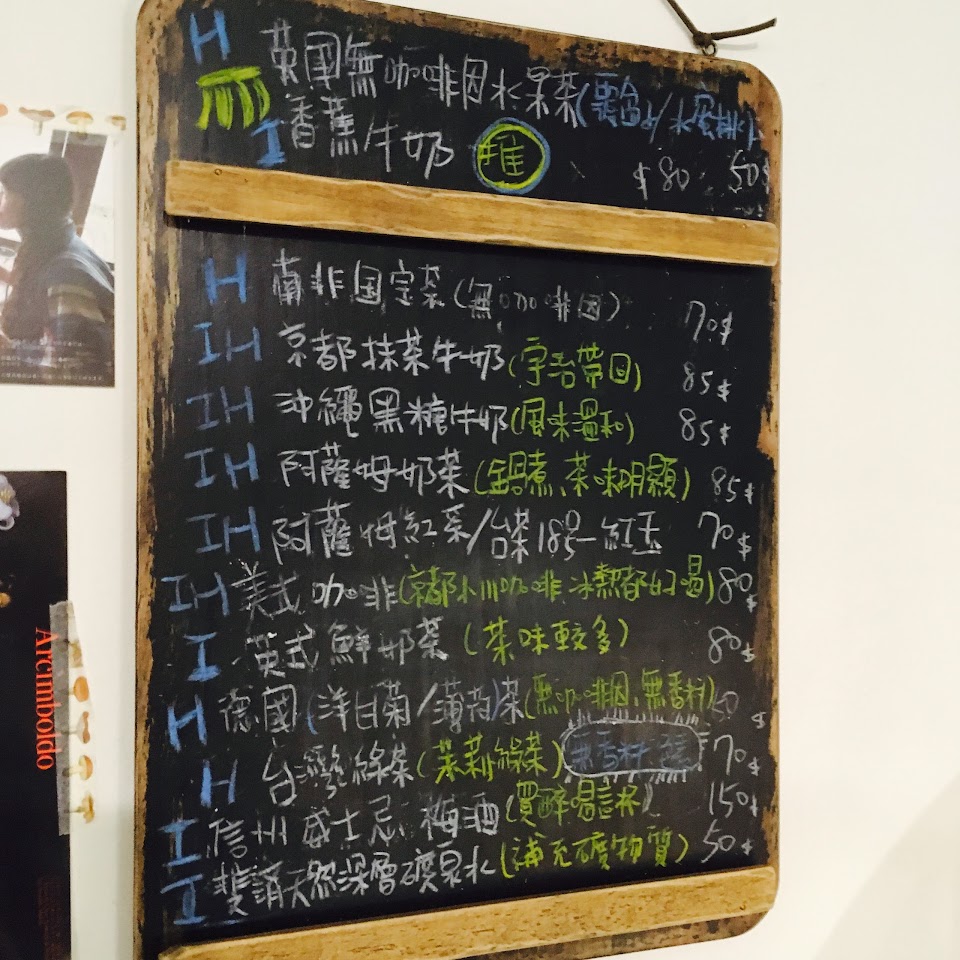 H 英國無咖啡因水果茶(
I 香蕉牛奶 推
$80 50$
H 南非国宝茶(無咖啡因) 70$
IH 京都抹茶牛奶(宇治帶回) 85$
IH 沖繩黑糖牛奶(風味溫和) 85$
IH 阿薩姆奶茶(鍋煮、茶味明顯) 85$
IH 阿薩姆紅茶/台茶18号-紅玉 70$
IH 美式咖啡(京都小川咖啡 冰熱都好喝) 80$
I 英式鮮奶茶(茶味較多) 80$
H 德國(洋甘菊/薄荷)茶(無咖啡因、無香料) $
H 台灣綠茶(茉莉綠茶) 無香料 70$
I 信州威士忌梅酒(買醉喝這杯) 150$
I 斐濟天然深層礦泉水(補充礦物質) 50$
Arcimboldo